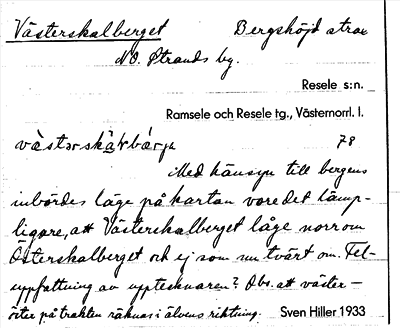 Västerskalberget Bergshöjd strax
NO. Strands by.
Resele s:n.
Ramsele och Resele tg., Västernorrl. l.
78
Med hänsyn till bergens
inbördes läge på kartan vore det lämp-
ligare, att Västerskalberget låge norr om
Österskalberget och ej som nu tvärt om. Fel-
uppfattning av upptecknaren? Obs. att väster-
öster på trakten räknas i älvens riktning. Sven Hiller 1933